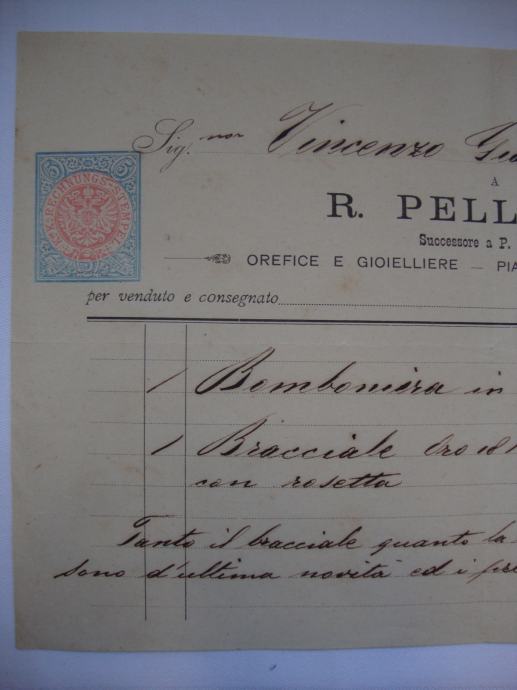 Sig.nor Vincenzo
5 5
K.K.Ö. RECHNUNGS-STEMPEL
5 5
A
R. PELL
Successore a P.
OREFICE E GIOIELLIERE — PIA
per venduto e consegnato
1 Bomboniera in
1 Bracciale Oro 18
con rosetta
Tanto il bracciale quanto la
sono d'ultima novità ed i